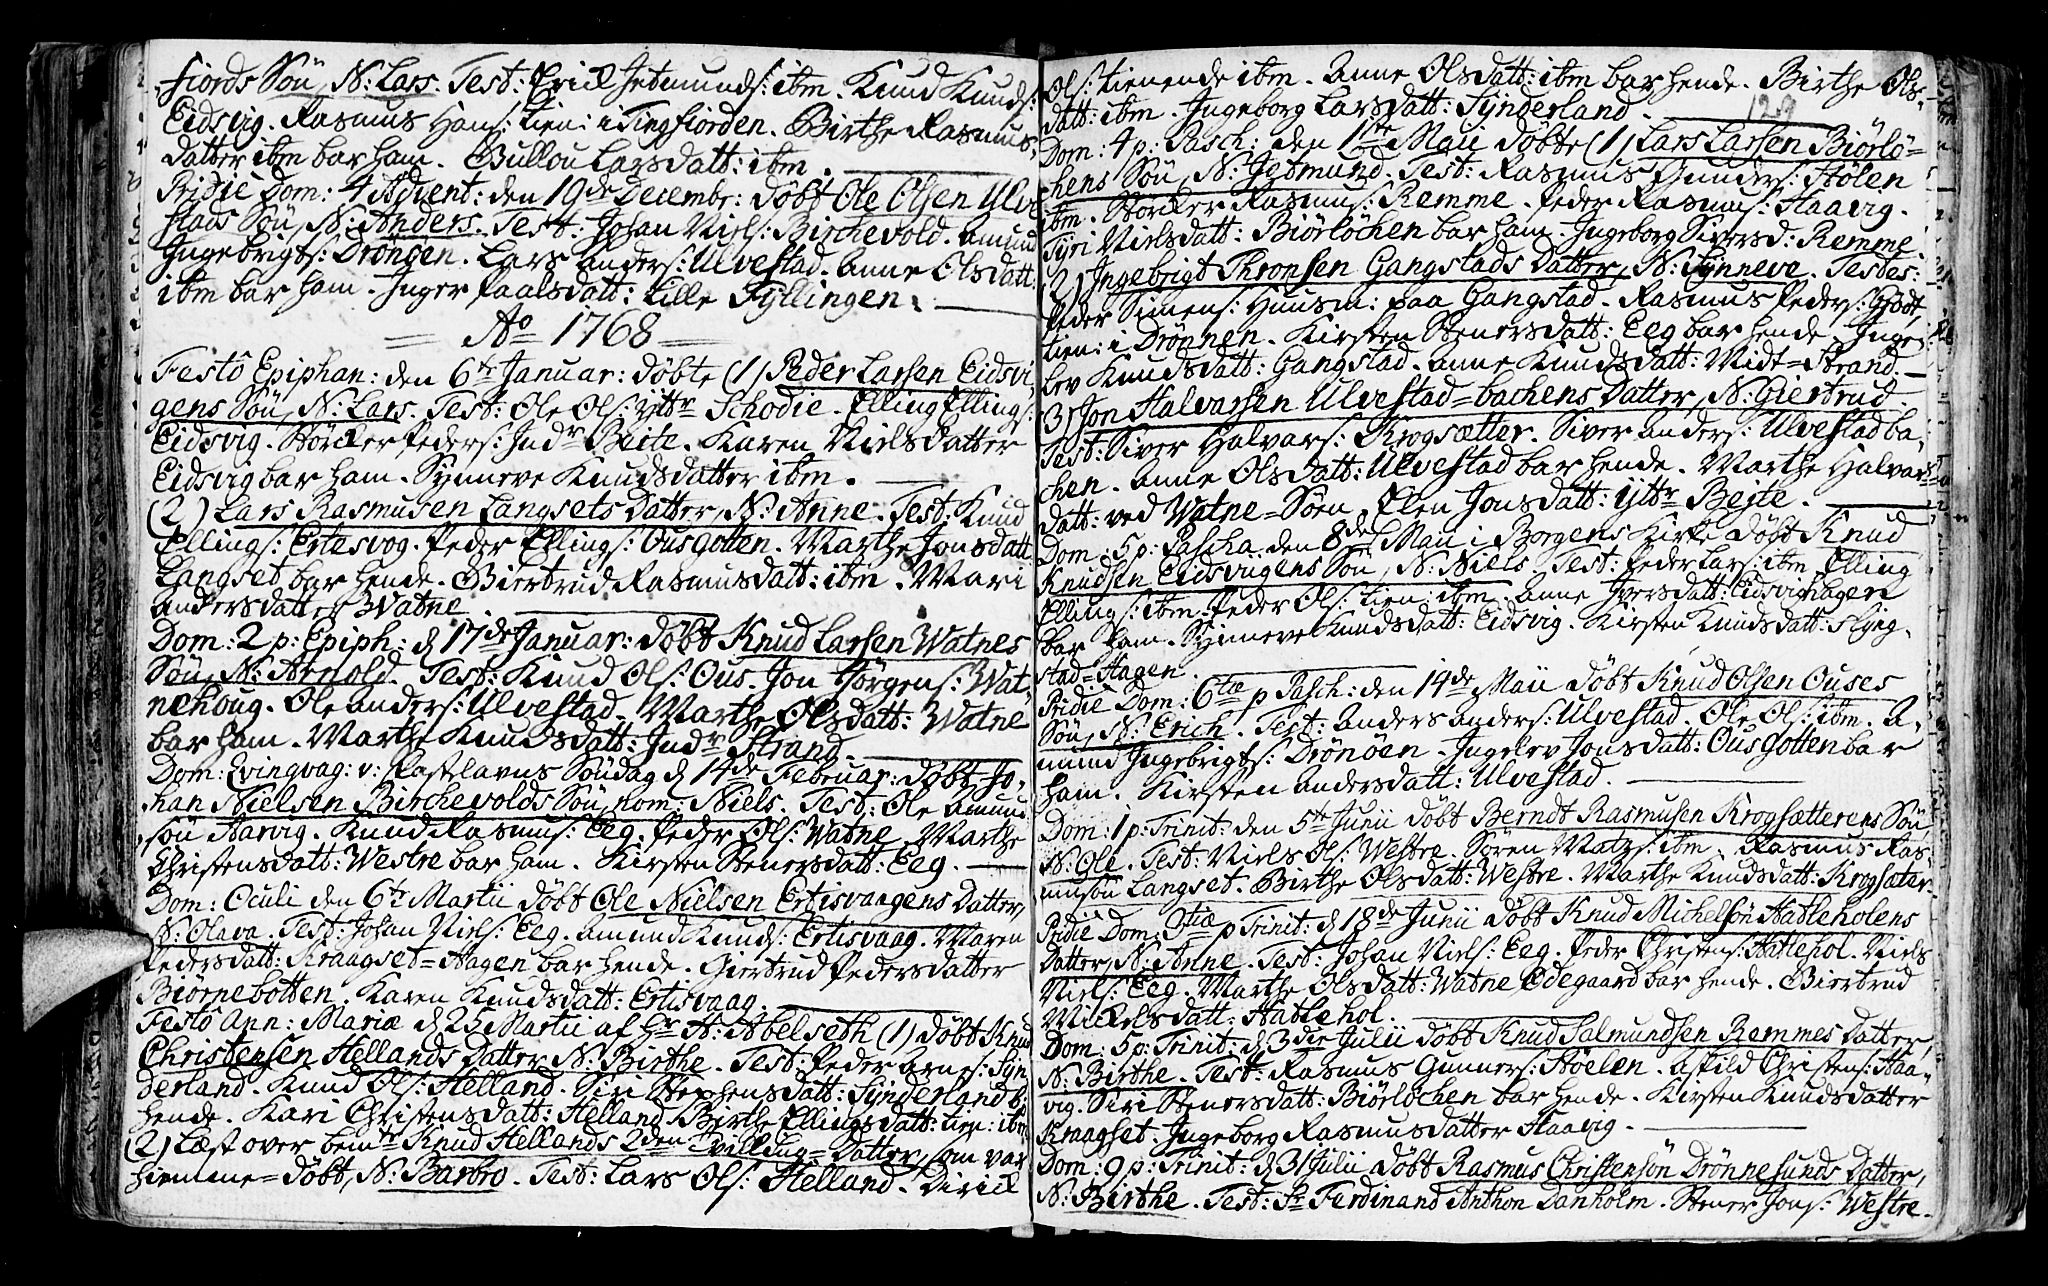 fiords Søn, N: Lars. Test: Erick Jetmunds: ibm. Knud Knuds:
Eidsvig. Rasmus Hans: tien: i Tingfiorden. Birthe Rasmus-
datter ibm bar ham. Bullou Larsdatt: ibm.
Pridie Dom: 4 Advent: den 19de Decembr: døbt Ole Olsen Ulve
stads Søn, N: Anders. Test: Johan Niels: Birchevold. Amund
Ingebrigts: Drönöen. Lars Anders: Ulvestad. Anne Olsdatt:
ibm bar ham. Inger Paalsdatt: Lille Fyllingen.
= Ao 1768 =
Festô Epiphan: den 6te Januar: døbte (1) Peder Larsen Eidsvi-
gens Søn, N: Lars. Test: Ole Ols: yttr Schodie. Elling Ellings:
Eidsvig. Störcker Peders: Indr Beite. Karen Nielsdatter
Eidsvig bar ham. Synneve Knudsdatter ibm.
(2) Lars Rasmusen Langsets Datter, N: Anne. Test: Knud
Ellings: Ertesvog. Peder Ellings: Ousgotten. Marthe Jonsdatt:
Langset bar hende. Giertrud Rasmusdatt: ibm. Mari
Andersdatter Watne
Dom: 2 p: Epiph: d 17de Januar: døbt Knud Larsen Watnes
Søn, N: Arnold. Test: Knud Ols: Ous. Jon Jörgens: Wat-
nehoug. Ole Anders: Ulvestad. Marthe Olsdatt: Watne
bar ham. Marthe Knudsdatt: Indr Strand
Dom: Qvinqvag: v: Fastelavns Søndag d 14de Februar: døbt Jo-
han Nielsen Birchevolds Søn, nom: Niels. Test: Ole Amund
søn Haavig. Knud Rasmus: Eeg. Peder Ols: Watne. Marthe
Christensdatt: Westre bar ham. Kirsten Stenersdatt: Eeg.
Dom: Oculi den 6te Martii døbt Ole Nielsen Ertisvaagens Datter,
N: Olava. Test: Johan Niels: Eeg. Amund Knuds: Ertisvaag. Maren
Pedersdatt: Kraagset=Hagen bar hende. Giertrud Pedersdatter
Biörnebotten. Karen Knudsdatt: Ertisvaag.
Festô Ann: Mariæ d 25 Martii af Hr H: Abelseth (1) døbt Knud
Christensen Hellands Datter, N: Birthe. Test: Peder Arnes: Syn
derland. Knud Ols: Helland. Siri Stephensdatt: Synderland b:
hende. Kari Christensdatt: Helland. Birthe Ellingsdatt: tien: ibm
(2) Læst over bemte Knud Hellands 2den Tvilling=Datter, som var
hiemme=døbt, N: Barbro. Test: Lars Ols: Helland. Dirick
Ols: tienende ibm. Anne Olsdatt: ibm bar hende. Birthe Ols-
datt: ibm. Ingeborg Larsdatt: Synderland.
129
Dom: 4 p: Pasch: den 1te Maii døbte (1) Lars Larsen Biörlö=
chens Søn, N: Jetmund. Test: Rasmus Gunders: Hølen
ibm. Störcker Rasmus: Remme. Peder Rasmus: Haavig.
Tyri Nielsdatt: Biörlöchen bar ham. Ingeborg Siversd: Remme.
2) Ingebrigt Thronsen Gangstads Datter, N: Synneve. Testes:
Peder Simens: Huusm: paa Gangstad. Rasmus Peders: Godt,
tien: i Drönnen. Kirsten Stenersdatt: Eeg bar hende. Inge-
lev Knudsdatt: Gangstad. Anne Knudsdatt: Midt=Strand.
3) Jon Halvarsen Ulvestad=bachens Datter, N: Giertrud.
Test: Siver Halvars: Krogsætter. Siver Anders: Ulvestadba-
chen. Anne Olsdatt: Ulvestad bar hende. Marthe Halvars
datt: ved Watne=Søen. Elen Jonsdatt: yttr Bejte.
Dom: 5 p: Pascha den 8de Maii i Borgens Kirke døbt Knud
Knudsen Eidsvigens Søn, N: Niels. Test: Peder Lars: ibm. Elling
Ellings: ibm. Peder Ols: tien: ibm. Anne Iversdatt: Eidsvighagen
bar ham. Synneve Knudsdatt: Eidsvig. Kirsten Knudsdatt: Slyng-
stad=Hagen.
Pridie Dom: 6tæ p Pasch: den 14de Maii døbt Knud Olsen Ouses
Søn, N: Erich. Test: Anders Anders: Ulvestad. Ole Ols: ibm. A-
mund Ingebrigts: Drönöen. Ingelev Jonsdatt: Ousgotten bar
ham. Kirsten Andersdatt: Ulvestad.
Dom: 1 p: Trinit: den 5te Junii døbt Berndt Rasmusen Krogsætterens Søn,
N: Ole. Test: Niels Ols: Westre. Sören Matzs: ibm. Rasmus Ras-
musøn Langset. Birthe Olsdatt: Westre. Marthe Knudsdatt: Krogsæter.
Pridie Dom: 3tiæ p Trinit: d 18de Junii døbt Knud Michelsön Hatleholens
Datter, N: Anne. Test: Johan Niels: Eeg. Peder Christens: Hatlehol. Niels
Niels: Eeg. Marthe Olsdatt: Watne Ødegaard bar hende. Giertrud
Mickelsdatt: Hatlehol.
Dom: 5 p: Trinit: d 3die Julii døbt Knud Salmundsen Remmes Datter,
N: Birthe. Test: Rasmus Gunners: Høelen. Aspild Christens: Haa-
vig. Siri Stenersdatt: Biörlöchen bar hende. Kirsten Knudsdatter
Kraagset. Ingeborg Rasmusdatter Haavig.
Dom: 9 p: Trinit: d 31 Julii døbt Rasmus Christensön Drönnesunds Datter,
N: Birthe. Test: Sr Ferdinand Anthon Danholm. Stener Jons: Westre.